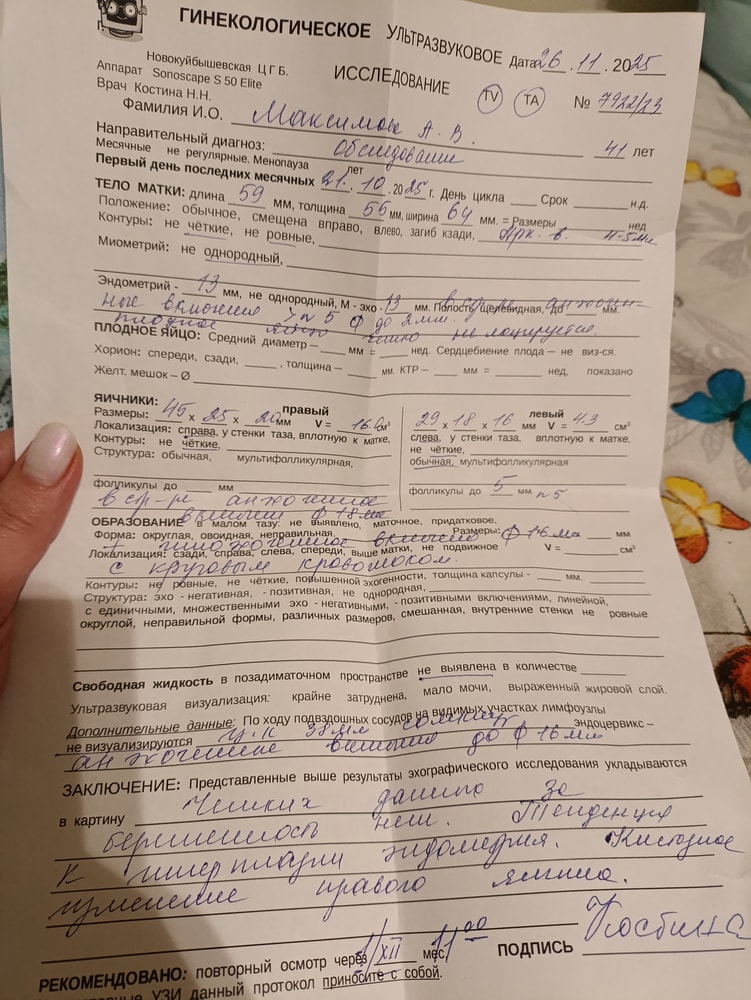 ГИНЕКОЛОГИЧЕСКОЕ УЛЬТРАЗВУКОВОЕ ИССЛЕДОВАНИЕ Дата 26.11.2025
Новокуйбышевская Ц Г Б.
Аппарат Sonoscape S 50 Elite
Врач Костина Н.Н.
TV TA № 7922/23
Фамилия И.О. А. В.
Направительный диагноз: обследование 41 лет
Месячные не регулярные. Менопауза лет
Первый день последних месячных 21.10.2025 г. День цикла Срок н.д.
ТЕЛО МАТКИ: длина 59 мм, толщина 56 мм, ширина 64 мм. = Размеры нед
Положение: обычное, смещена вправо, влево, загиб кзади,
Контуры: не чёткие, не ровные, 4-5мм
Миометрий: не однородный,
Эндометрий - 13 мм, не однородный, М - эхо - 13 мм. Полость щелевидная, до мм.
ные включения n 5 ф до 2мм.
плодное яйцо не лоцируется.
ПЛОДНОЕ ЯЙЦО: Средний диаметр – мм = нед. Сердцебиение плода – не виз-ся.
Хорион: спереди, сзади, , толщина – мм. КТР – мм = нед, показано
Желт. мешок – Ø
ЯИЧНИКИ: правый левый
Размеры: 45 х 25 х 20 мм V = см³ 29 х 18 х 16 мм V = 4.3 см³
Локализация: справа, у стенки таза, вплотную к матке, слева, у стенки таза, вплотную к матке,
Контуры: не чёткие, не чёткие,
Структура: обычная, мультифолликулярная, обычная, мультифолликулярная
фолликулы до мм фолликулы до 5 мм n 5
в ср-ре анэхогенное
включение ф 18 мм
ОБРАЗОВАНИЕ в малом тазу: не выявлено, маточное, придатковое,
Форма: округлая, овоидная, неправильная. Размеры: мм
включение ф 16 мм
Локализация: сзади, справа, слева, спереди, выше матки, не подвижное V = см³
с круговым кровотоком.
Контуры: не ровные, не чёткие, повышенной эхогенности, толщина капсулы - мм.
Структура: эхо - негативная, - позитивная, не однородная,
с единичными, множественными эхо - негативными, - позитивными включениями, линейной,
округлой, неправильной формы, различных размеров, смешанная, внутренние стенки не ровные
Свободная жидкость в позадиматочном пространстве не выявлена в количестве
Ультразвуковая визуализация: крайне затруднена, мало мочи, выраженный жировой слой.
Дополнительные данные: По ходу подвздошных сосудов на видимых участках лимфоузлы
не визуализируются ц.к 38мм сомкнут эндоцервикс –
анэхогенные включения до ф 16 мм
ЗАКЛЮЧЕНИЕ: Представленные выше результаты эхографического исследования укладываются
в картину Четких данных за
беременность нет. Тенденция
к гиперплазии эндометрия. Кистозное
изменение правого яичника.
РЕКОМЕНДОВАНО: повторный осмотр через мес. 11 00 ПОДПИСЬ
УЗИ данный протокол приносите с собой.